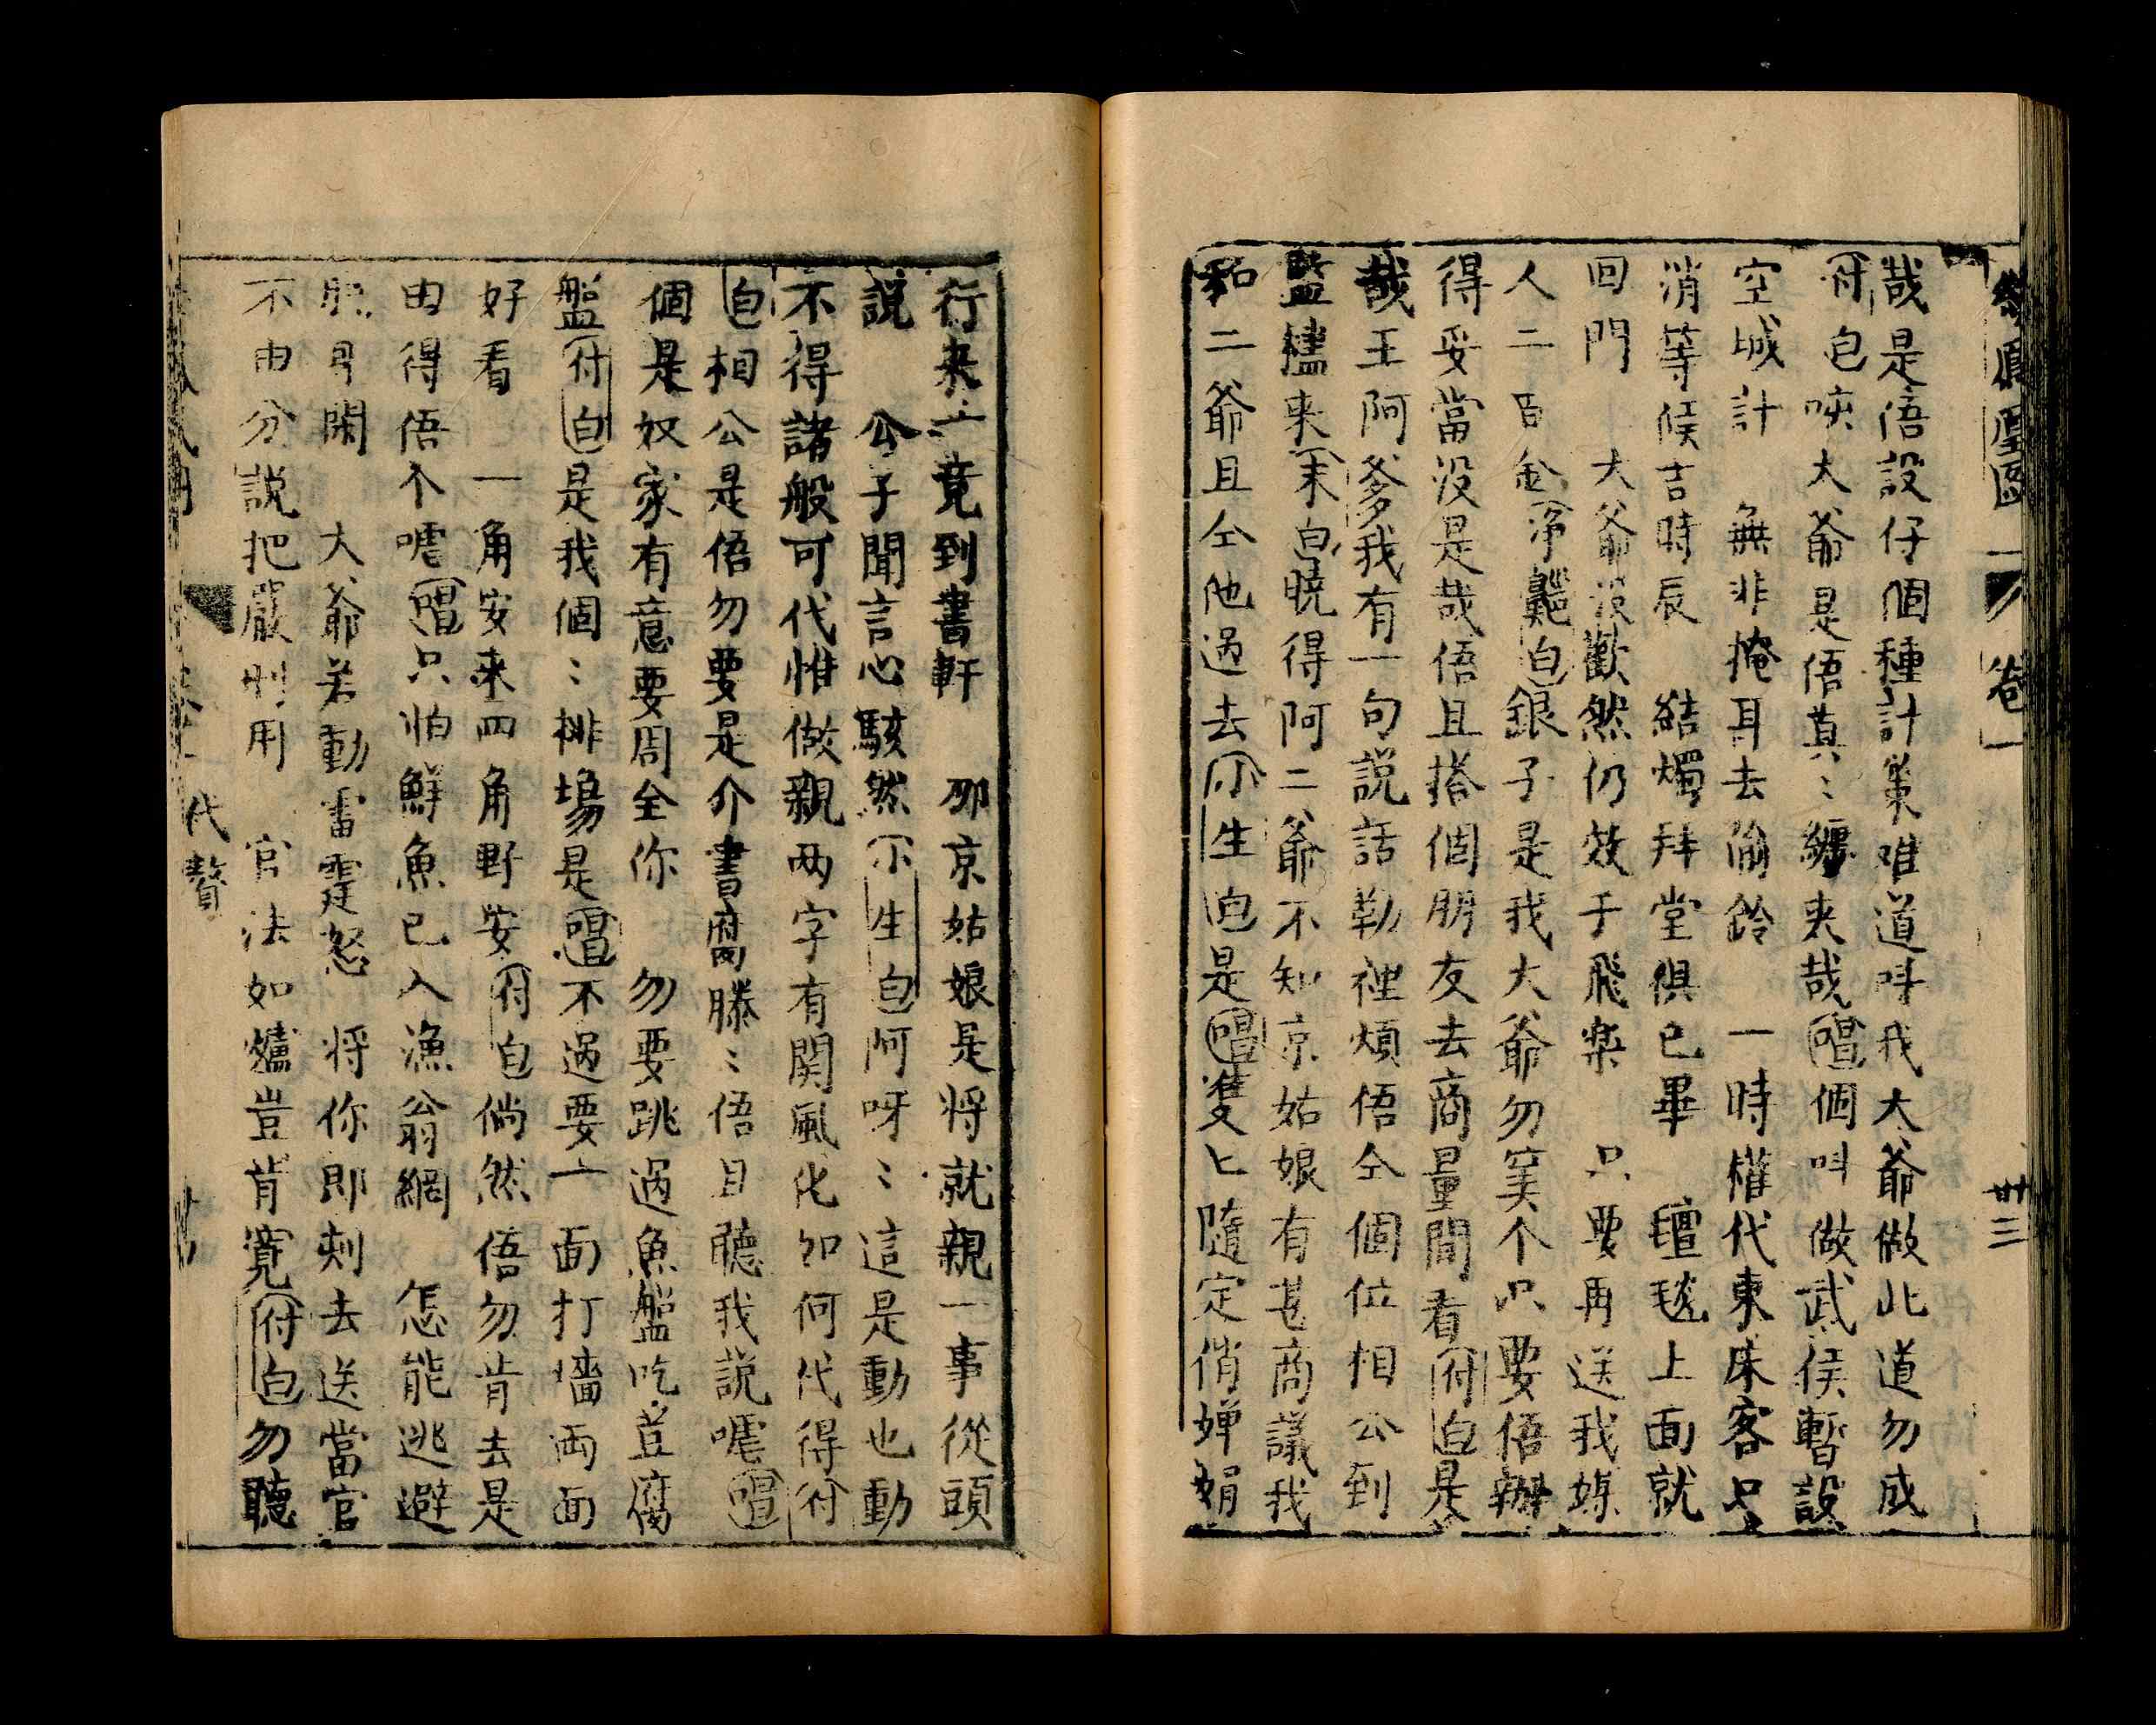 鳳凰图 卷一 卅三
哉是俉設仔個種計策难道呌我大爺做此道勿成
付白唊大爺是俉真〻纏夹哉唱個呌做武侯暫設
空城計 無非掩耳去偷鈴 一時權代東床客只
消等候吉時辰 結燭拜堂俱已畢 氊毯上面就
回門 大爺没歡然仍效于飛楽 只要再送我媒
人二百金净白銀子是我大爺勿筭个只要俉辦
得妥當没是哉俉且搭個朋友去商量間看付白是
哉王阿爹我有一句説話勒裡煩俉仝個位相公到
監櫨来末白暁得阿二爺不知京姑娘有甚商議我
和二爺且仝他过去小生白是唱隻匕隨定俏婵娟
行来亠竟到書軒 邜京姑娘是将就親一事從頭
説 公子聞言心駭然小生白阿呀〻這是動也動
不得諸般可代惟做親两字有関風化如何代得付
白相公是俉勿要是介書腐滕〻俉且聽我説嘘唱
個是奴家有意要周全你 勿要跳过魚盤吃荳腐
盤付白是我個〻排塲是唱不过要亠面打墻両面
好看 一角安来四角野安付白倘然俉勿肯去是
由得俉个嘘唱只怕鮮魚已入漁翁網 怎能逃避
身閑 大爺若動雷霆怒 将你即刻去送當官
不由分説把嚴刑用 官法如爐豈肯寛付白勿聽
代贅